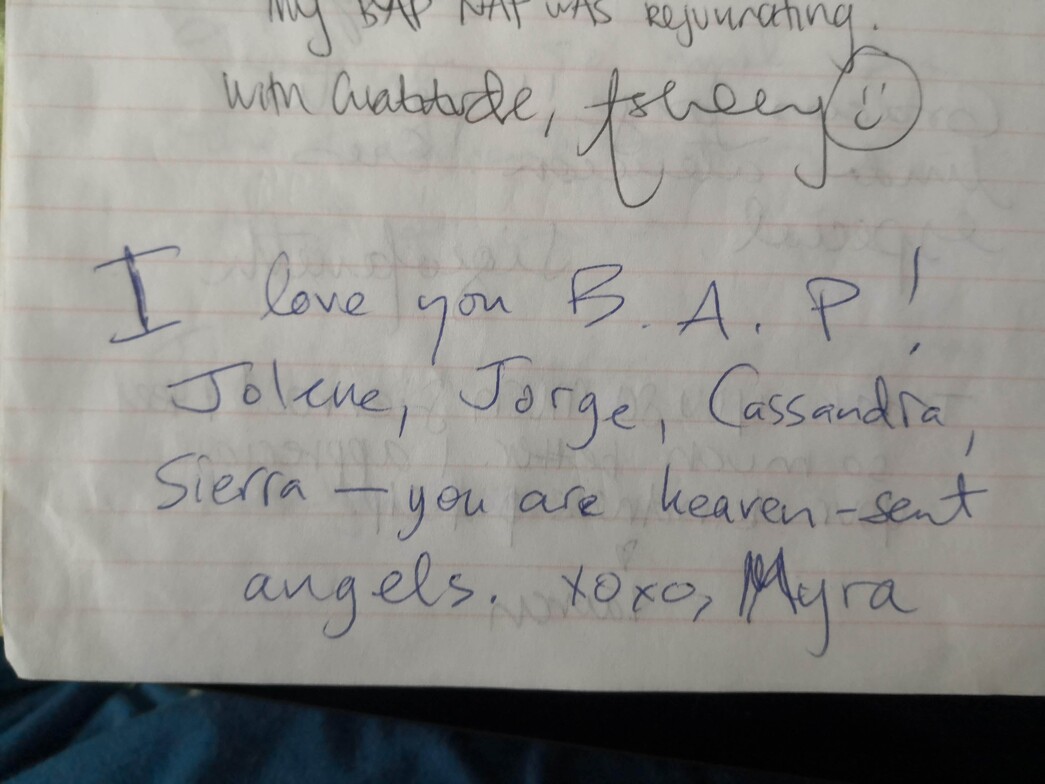 My BAP NAP WAS Rejuvinating.
With Gratitude,
I love you B.A.P!
Jolene, Jorge, Cassandra,
Sierra — you are heaven-sent
angels. xoxo, Myra